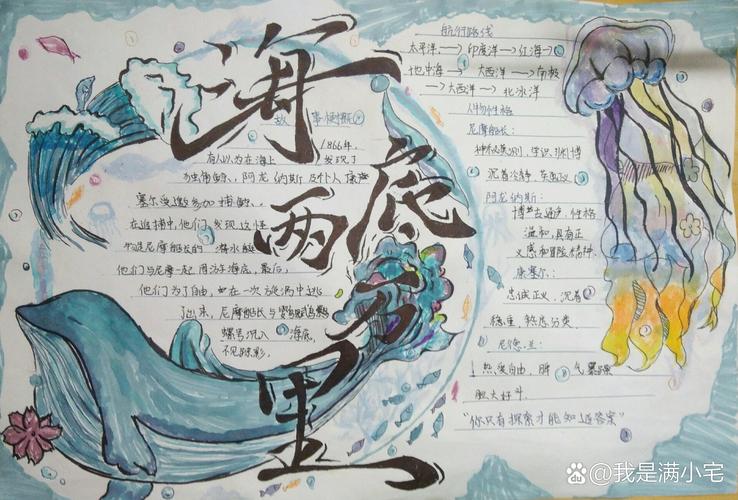 海底两万里
故事梗概
1866年,
有人以为在海上发现了
独角鲸,阿龙纳斯及仆人康
塞尔受邀参加捕鲸,
在追捕中,他们发现这怪
物是尼摩船长的潜水艇
他们与尼摩一起周游海底,最后,
他们为了自由,在一次旋涡中逃
了出来,尼摩船长与
螺号沉入海底,
不见踪影,
航行路线
太平洋→印度洋→红海→
地中海→大西洋→南极
→大西洋→北冰洋
人物性格
尼摩船长:
神秘莫测,学识渊博
沉着冷静,
阿龙纳斯:
博古通今,性格
温和,具有正
义感和冒险精神.
康塞尔:
忠诚正义,沉着
稳重,热心分类.
尼德.兰:
热爱自由,脾气暴躁
胆大好斗.
“你只有探索才能知道答案”
@我是满小宅